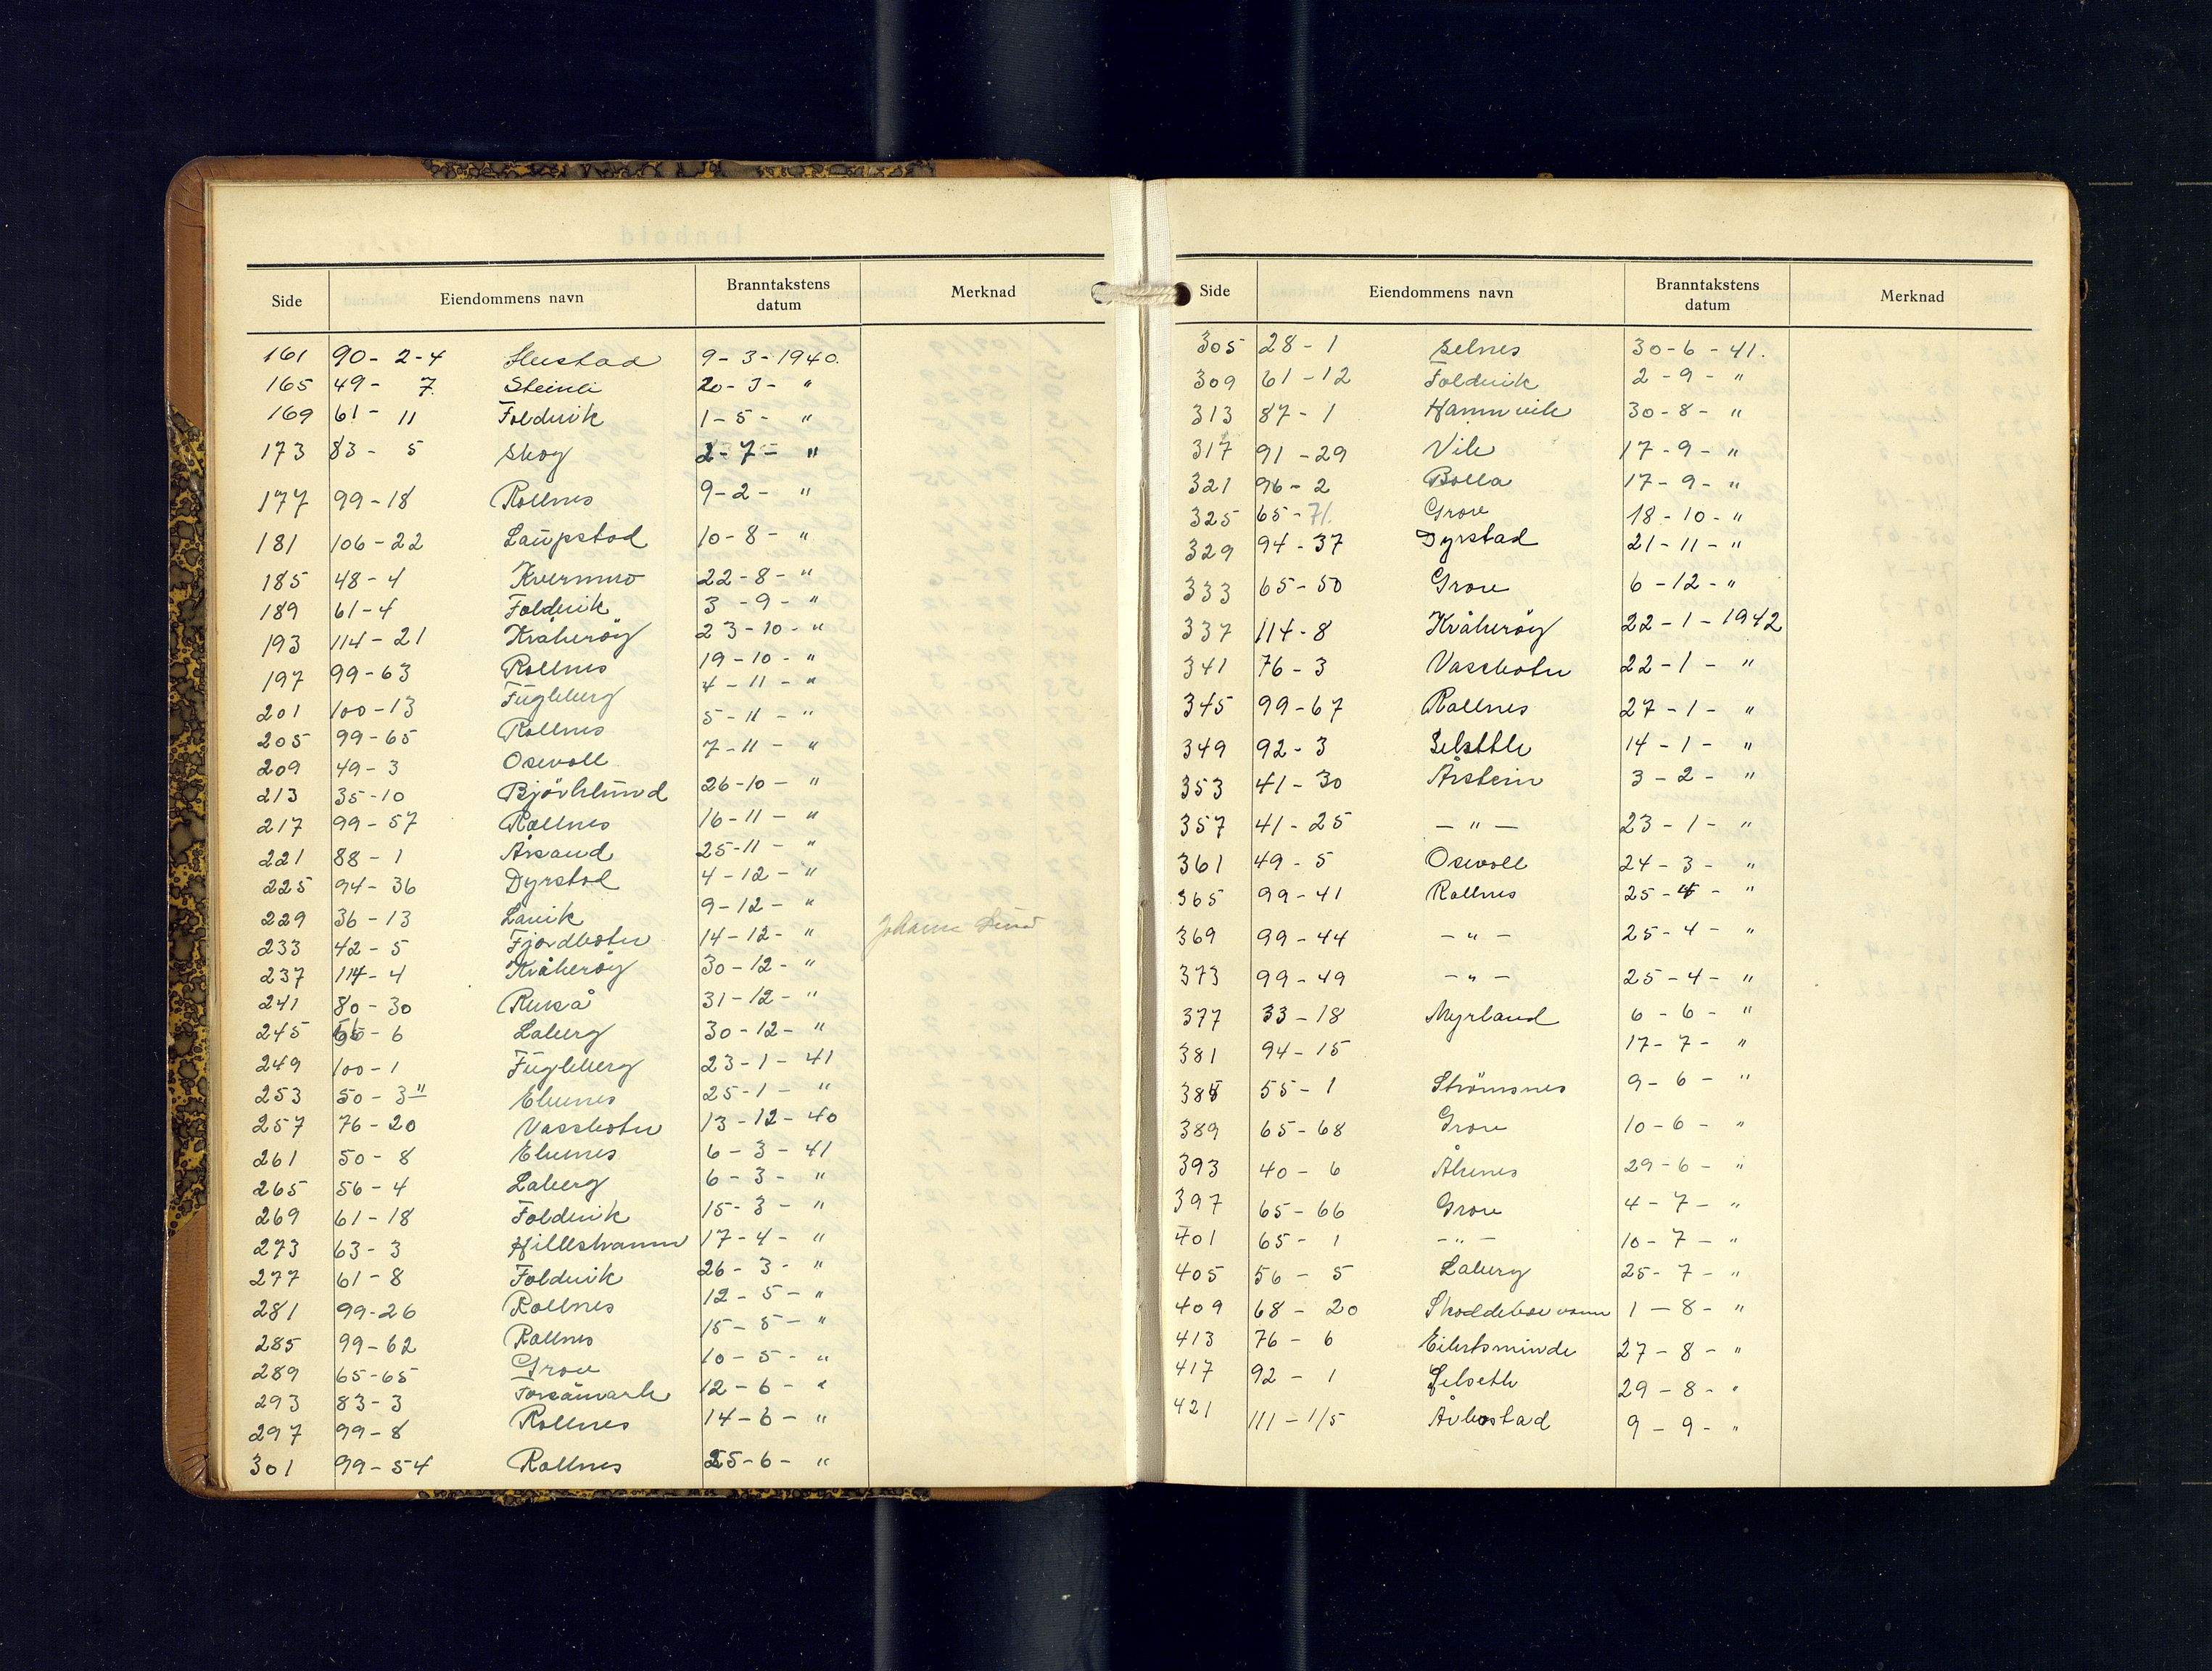 Side Eiendommens navn Branntakstens datum Merknad
161 90-2-4 9-3-1940.
165 49-7. Steinli 20-3- "
169 61-11 Foldvik 1-5- "
173 83-5 Skog 2-7- "
177 99-18 Rollnes 9-2- "
181 106-22 Laupstad 10-8- "
185 48-4 Kvernmo 22-8- "
189 61-4 Foldvik 3-9- "
193 114-21 Kråkerøy 23-10- "
197 99-63 Rollnes 19-10- "
201 100-13 Fugleberg 4-11- "
205 99-65 Rollnes 5-11- "
209 49-3 Osevoll 7-11- "
213 35-10 Bjørklund 26-10- "
217 99-57 Rollnes 16-11- "
221 88-1 Årsand 25-11- "
225 94-36 Dyrstad 4-12- "
229 36-13 Lavik 9-12- "
233 42-5 Fjordbotn 14-12- " Johann
237 114-4 Kråkerøy 30-12- "
241 80-30 Renså 31-12- "
245 56-6 Laberg 30-12- "
249 100-1 Fugleberg 23-1-41
253 50-3" Elvenes 25-1- "
257 76-20 Vassbotn 13-12-40
261 50-8 Elvenes 6-3-41
265 56-4 Laberg 6-3- "
269 61-18 Foldvik 15-3- "
273 63-3 Hilleshamn 17-4- "
277 61-8 Foldvik 26-3- "
281 99-26 Rollnes 12-5- "
285 99-62 Rollnes 15-5- "
289 65-65 Grov 10-5- "
293 83-3 Torsåmark 12-6- "
297 99-8 Rollnes 14-6- "
301 99-54 Rollnes 25-6- "
Side Eiendommens navn Branntakstens datum Merknad
305 28-1 Selnes 30-6-41.
309 61-12 Foldvik 2-9- "
313 87-1 Hamnvik 30-8- "
317 91-29 Vik 17-9- "
321 96-2 Bolla 17-9- "
325 65-71. Grov 18-10- "
329 94-37 Dyrstad 21-11- "
333 65-50 Grov 6-12- "
337 114-8 Kråkerøy 22-1-1942
341 76-3 Vassbotn 22-1- "
345 99-67 Rollnes 27-1- "
349 92-3 14-1- "
353 41-30 Årstein 3-2- "
357 41-25 - " - 23-1- "
361 49-5 Osevoll 24-3- "
365 99-41 Rollnes 25-4- "
369 99-44 - " - 25-4- "
373 99-49 - " - 25-4- "
377 33-18 Myrland 6-6- "
381 94-15 17-7- "
385 55-1 Strømsnes 9-6- "
389 65-68 Grov 10-6- "
393 40-6 Åknes 29-6- "
397 65-66 Grov 4-7- "
401 65-1 - " - 10-7- "
405 56-5 Laberg 25-7- "
409 68-20 1-8- "
413 76-6 Eilertsminde 27-8- "
417 92-1 Selseth 29-8- "
421 111-1/5 Åvbostad 9-9- "